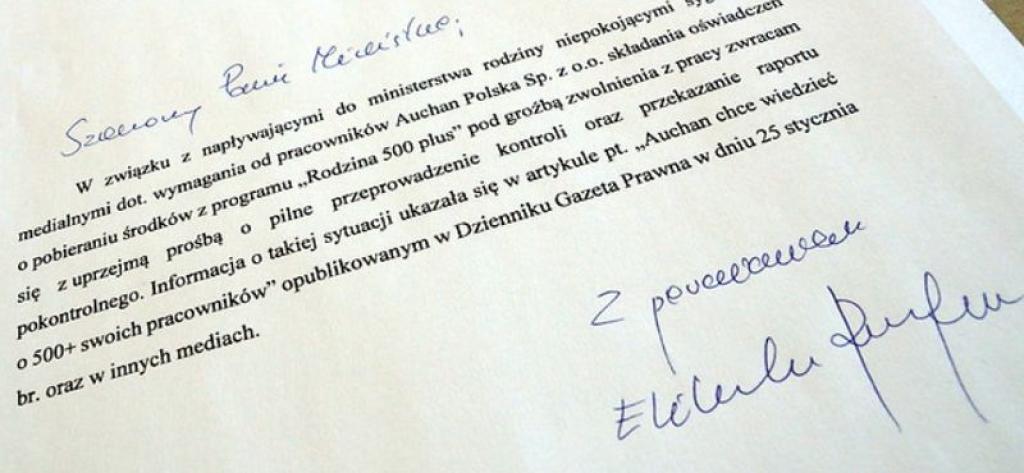 Szanowny Panie Ministrze,
W związku z napływającymi do ministerstwa rodziny niepokojącymi
medialnymi dot. wymagania od pracowników Auchan Polska Sp. z o.o. składania oświadczeń
o pobieraniu środków z programu „Rodzina 500 plus” pod groźbą zwolnienia z pracy zwracam
się z uprzejmą prośbą o pilne przeprowadzenie kontroli oraz przekazanie raportu
pokontrolnego. Informacja o takiej sytuacji ukazała się w artykule pt. „Auchan chce wiedzieć
o 500+ swoich pracowników” opublikowanym w Dzienniku Gazeta Prawna w dniu 25 stycznia
br. oraz w innych mediach.
Z poważaniem